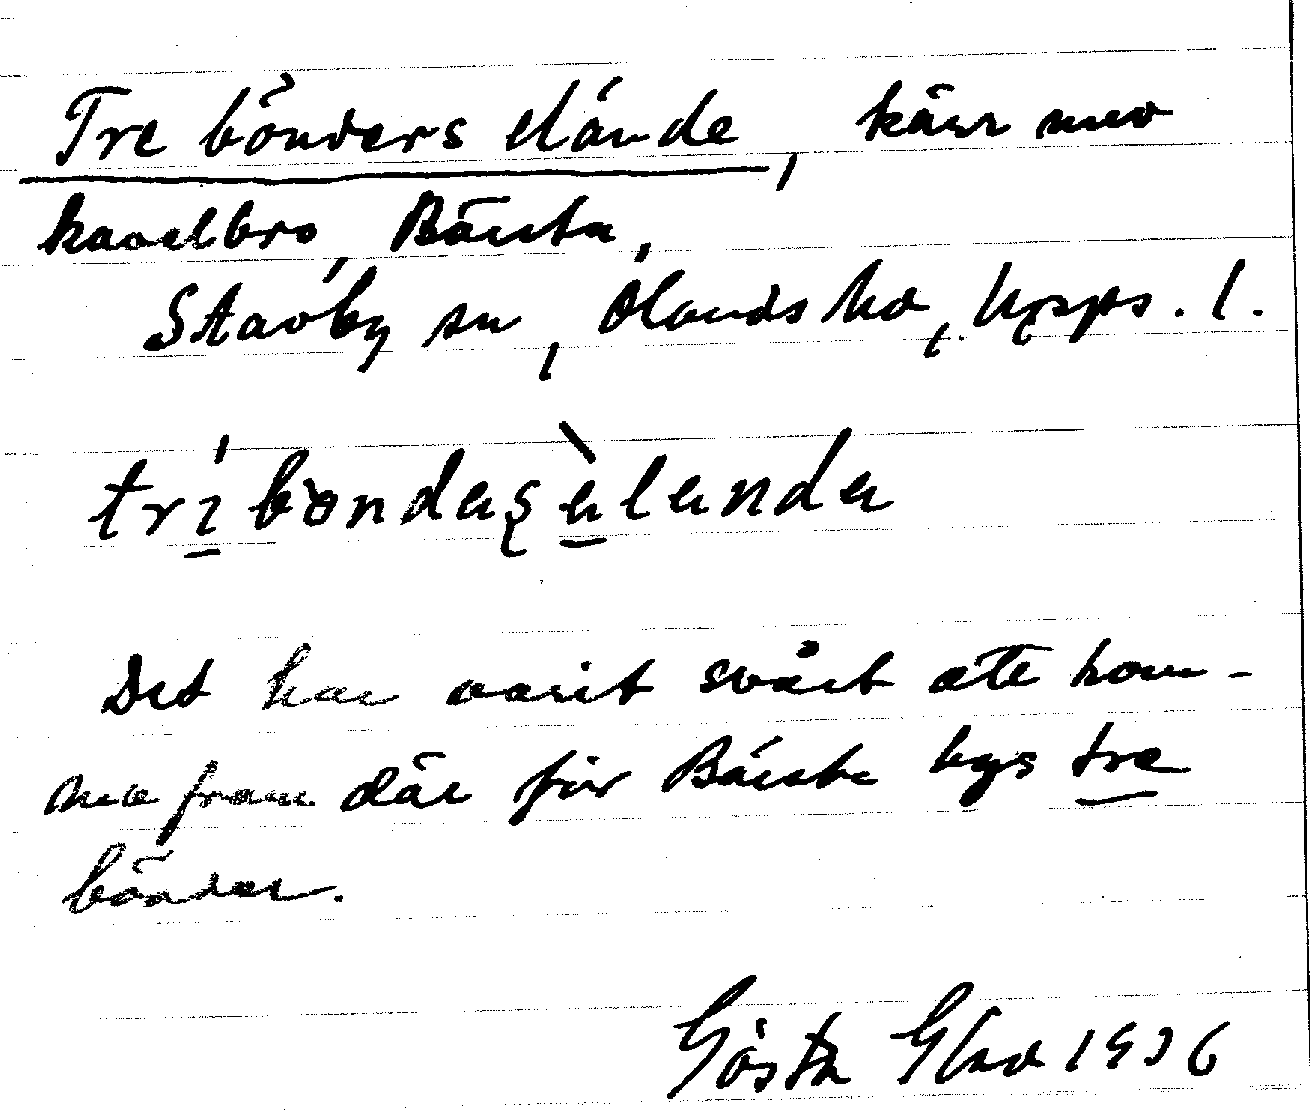 Tre bönders elände, kärr med
kavelbro, Bärsta,
Stavby sn, Olands hd, Upps. l.
trí bondaṣ àlanda
Det har varit svårt att kom-
ma fram där för Bärsta bys tre
bönder.
Gösta Glad 1936